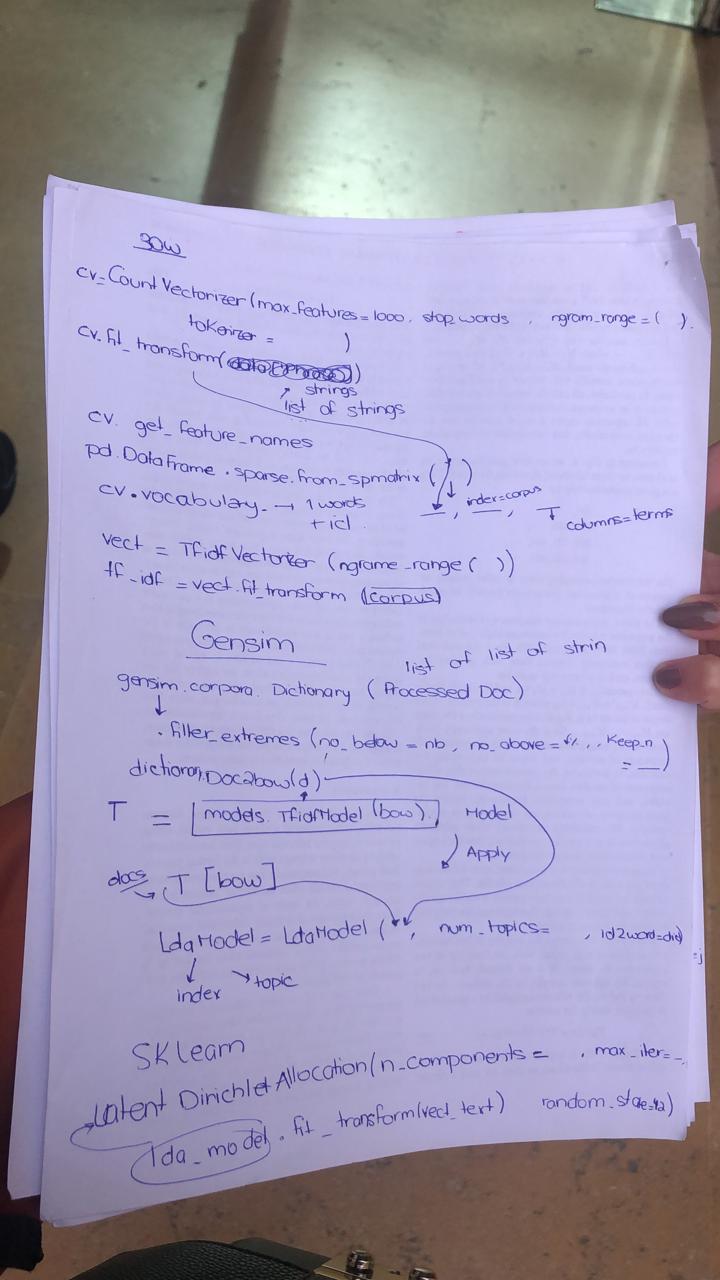 BOW
cv=CountVectorizer(max_features=1000, stop_words , ngram_range=( ).
tokenizer = )
cv.fit_transform( )
strings
list of strings
cv. get_feature_names
pd.DataFrame.sparse.from_spmatrix ( )
index=corpus
cv.vocabulary_ → 1 words
+ id
columns=terms
vect = TfidfVectorizer (ngrame_range( ))
tf_idf = vect.fit_transform (corpus)
Gensim
list of list of strin
gensim.corpora. Dictionary (Processed Doc)
. filter_extremes (no_below = nb, no_above = , , keep_n = __)
Doc2bow(d)
T = models.TfidfModel (bow). Model
Apply
docs T [bow]
LdaModel = LdaModel ( , num_topics= , id2word=dic)
index topic
SKlearn
Latent Dirichlet Allocation(n_components = , max_iter=_
lda_model . fit_transform(vect_text) random_state=42)